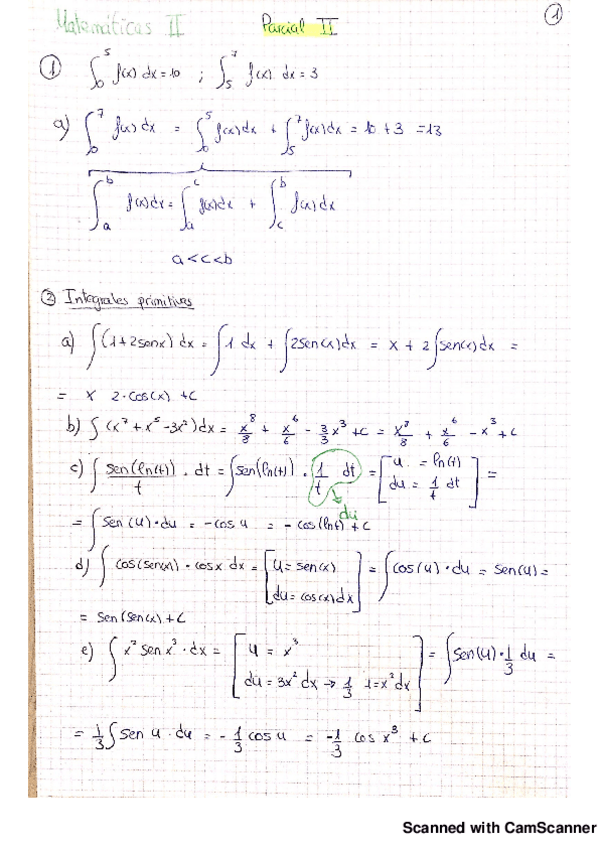 Matemáticas II Parcial II 1
① ∫₀⁵ f(x) dx = 10 ; ∫₅⁷ f(x) dx = 3
a) ∫₀⁷ f(x) dx = ∫₀⁵ f(x) dx + ∫₅⁷ f(x) dx = 10 + 3 = 13
∫ₐᵇ f(x) dx = ∫ₐᶜ f(x) dx + ∫_c^b f(x) dx
a < c < b
② Integrales primitivas
a) ∫ (1 + 2senx) dx = ∫ 1 dx + ∫ 2sen(x) dx = x + 2 ∫ sen(x) dx =
= x 2·cos(x) + c
b) ∫ (x⁷ + x⁵ - 3x²) dx = x⁸/8 + x⁶/6 - 3/3 x³ + c = x⁸/8 + x⁶/6 - x³ + c
c) ∫ sen(ln(t))/t · dt = ∫ sen(ln(t)) · 1/t dt = [u = ln(t)
du = 1/t dt] =
du
= ∫ sen(u) · du = -cos u = -cos(ln t) + c
d) ∫ cos(sen(x)) · cosx dx = [u = sen(x)
du = cos(x) dx] = ∫ cos(u) · du = sen(u) =
= sen(sen(x)) + c
e) ∫ x² sen x³ · dx = [u = x³
du = 3x² dx → 1/3 1 = x² dx] = ∫ sen(u) · 1/3 du =
= 1/3 ∫ sen u · du = -1/3 cos u = -1/3 cos x³ + c
Scanned with CamScanner